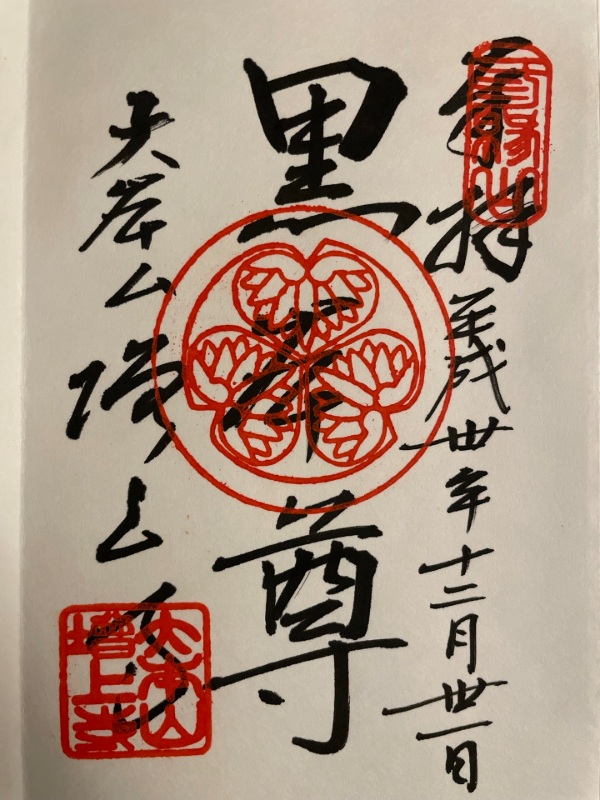 奉拝
平成卅年十二月卅一日
黒本尊
大本山増上寺
三縁山
大本山
増上寺